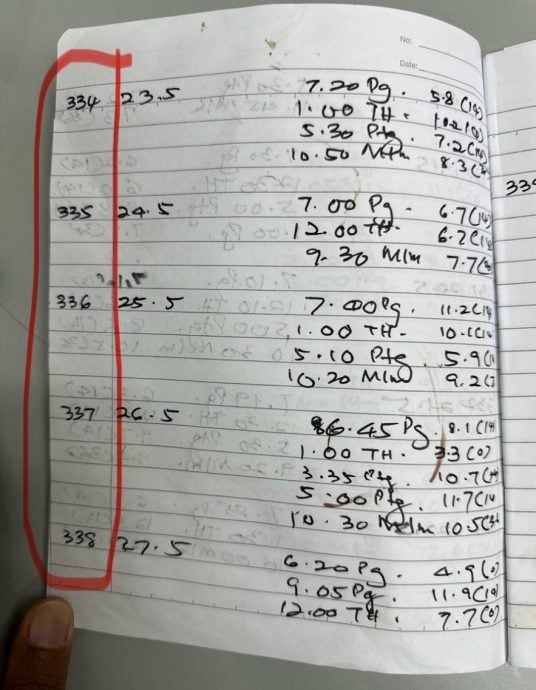 No:
Date:
334 23.5 7.20 Pg. 5.8 (14)
1.00 TH.
5.30 Ptg 7.2
10.50 Mlm 8.3
335 24.5 7.00 Pg. 6.7 (14)
12.00 TH. 6.2 (14
9.30 Mlm 7.7
336 25.5 7.00 Pg. 11.2 (14
1.00 TH. 10.1 (14
5.10 Ptg 5.9 (
10.20 Mlm 9.2 (3
337 26.5 6.45 Pg. 8.1 (14
1.00 TH. 3.3 (0)
3.35 Ptg. 10.7 (14
5.00 Ptg. 11.7 (14
10.30 Mlm 10.5
338 27.5
6.20 Pg. 4.9 (0)
9.05 Pg. 11.9
12.00 TH. 7.7 (0)